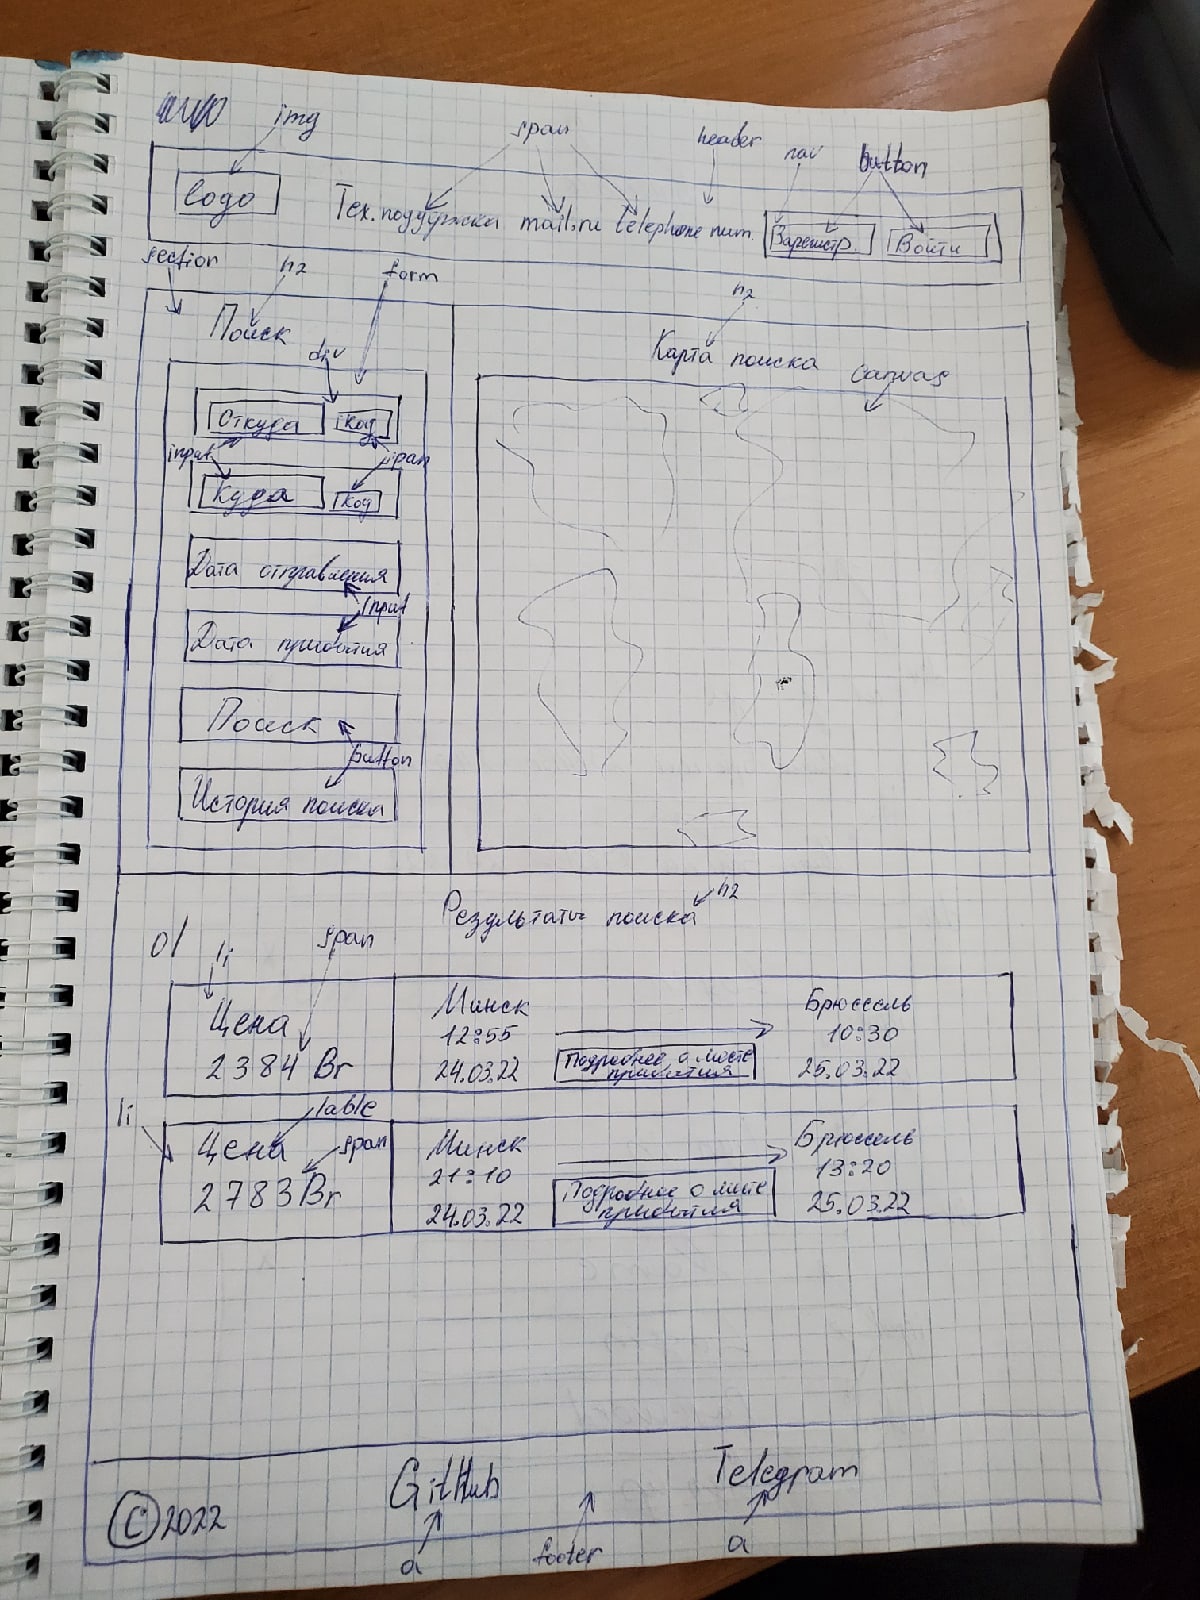 img
span
header
nav
button
Logo
Тех.поддержка mail.ru telephone num.
Зарегистр.
Войти
section
h2
form
h2
Поиск
Карта поиска
canvas
div
Откуда
Код
input
span
Куда
Код
Дата отправления
input
Дата прибытия
Поиск
button
История поиска
h2
Результаты поиска
ol
li
span
Цена
2384 Br
Минск
12:55
24.03.22
Подробнее о месте
прибытия
Брюссель
10:30
25.03.22
li
lable
Цена
span
2783 Br
Минск
21:10
24.03.22
Подробнее о месте
прибытия
Брюссель
13:20
25.03.22
© 2022
GitHub
Telegram
a
footer
a